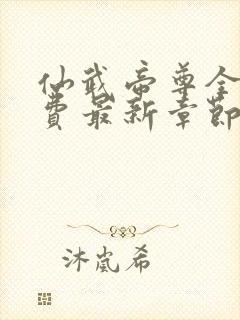 仙武帝尊全
费最新章節
沐嵐希